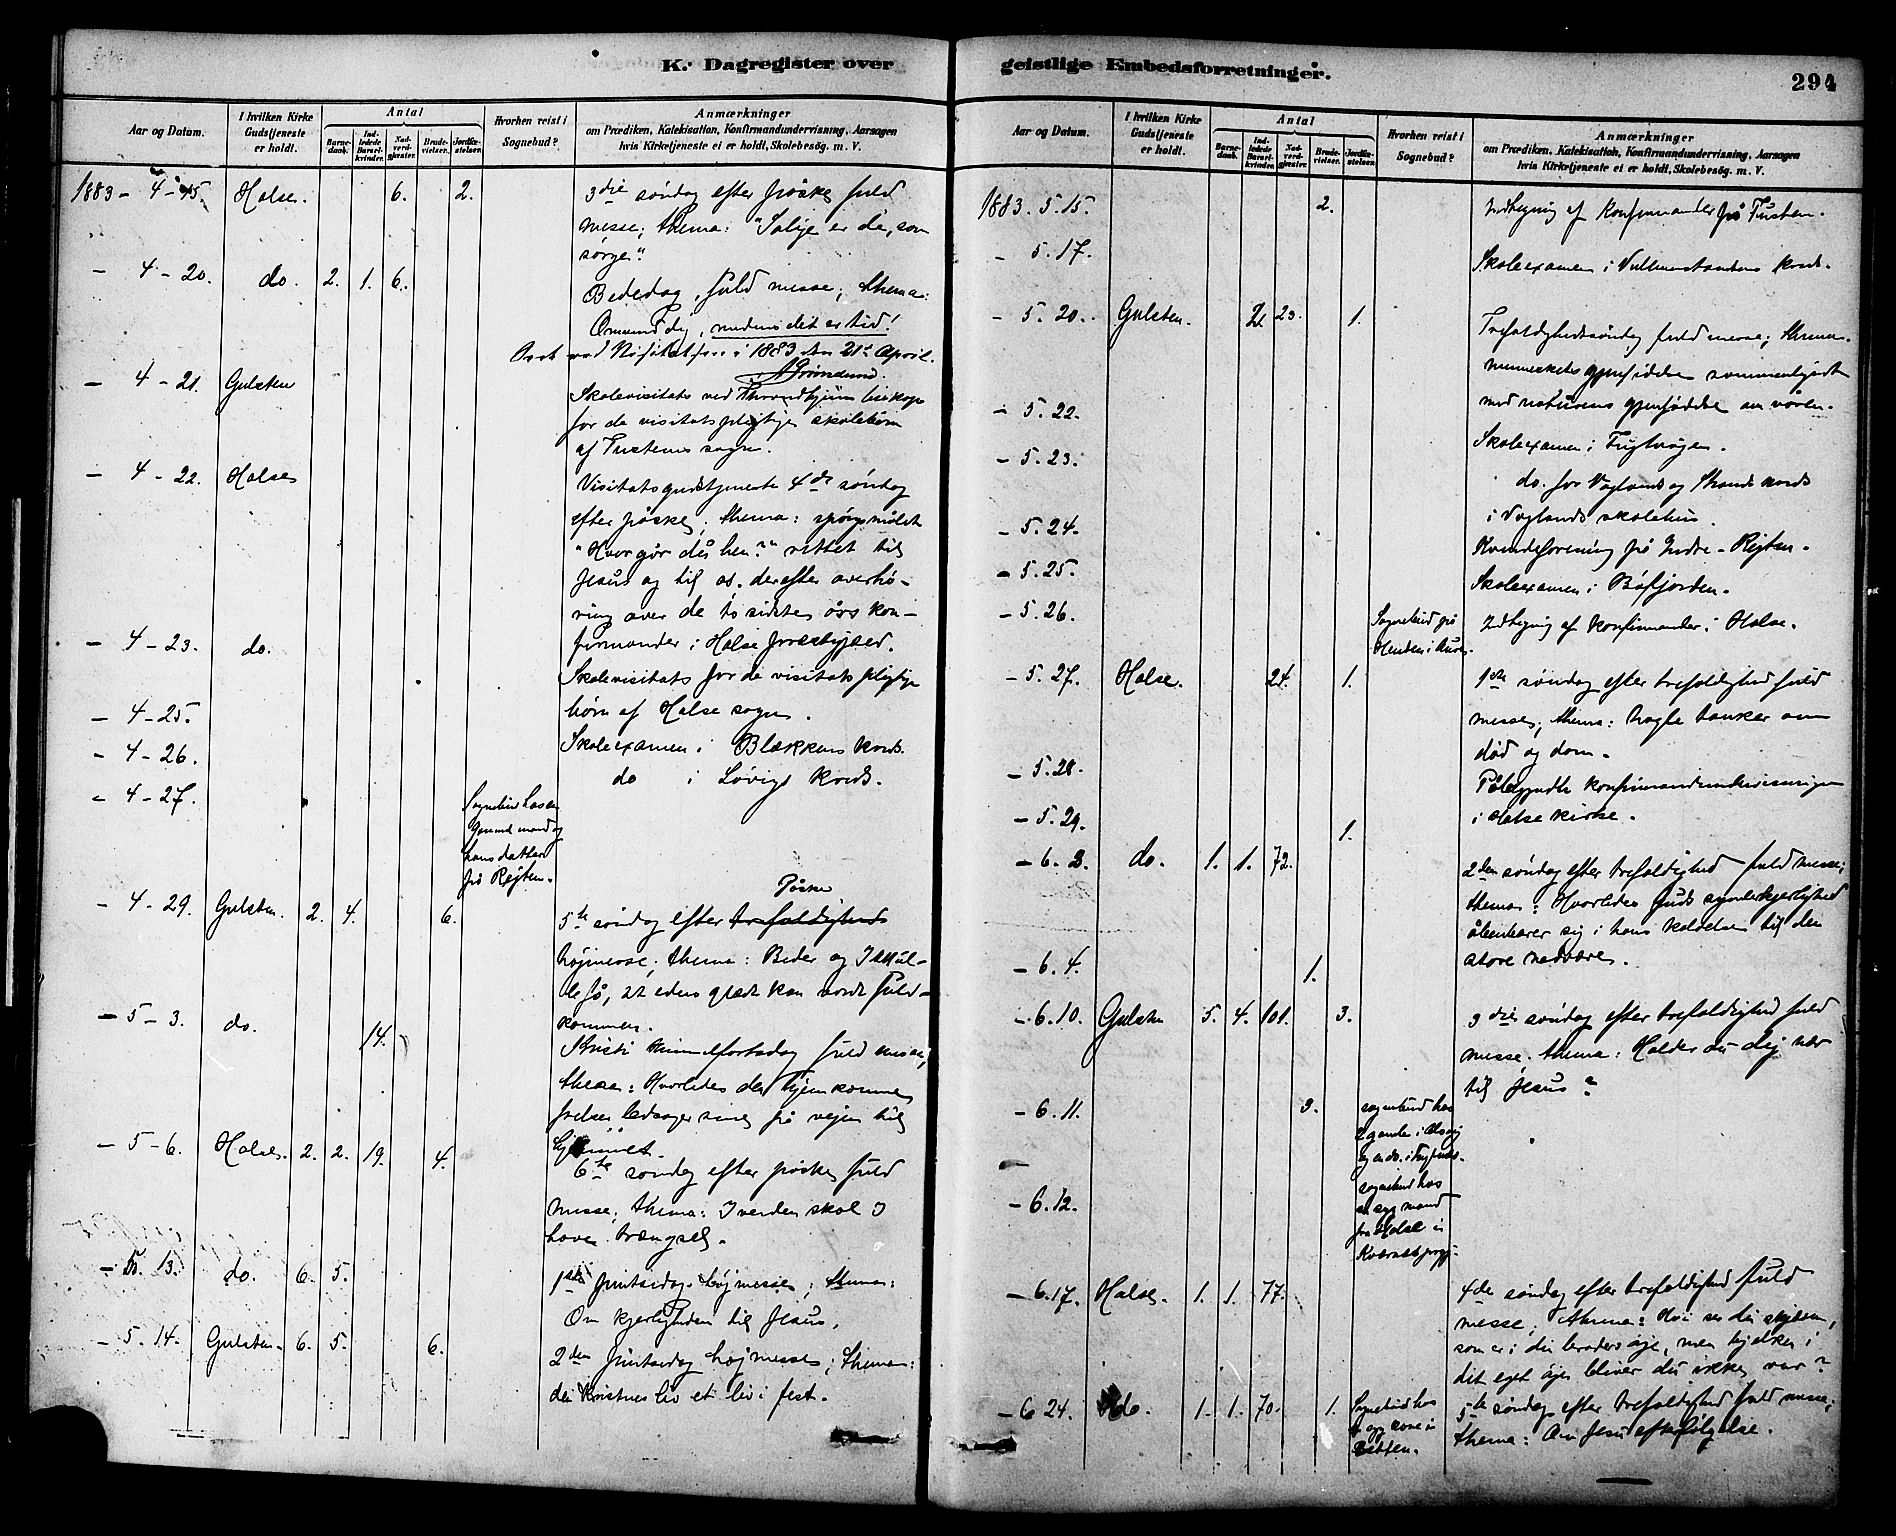 K. Dagregister over geistlige Embedsforretninger.
294
Aar og Datum.
I hvilken Kirke Gudstjeneste er holdt.
Antal
Barnedaab.
Indledede Barselkvinder.
Nadverdgjester.
Brudevielser.
Jordfæstelser.
Hvorhen reist i Sognebud?
Anmærkninger
om Prædiken, Katekisation, Konfirmandundervisning, Aarsagen
hvis Kirketjeneste ei er holdt, Skolebesøg. m. V.
1883 - 4 - 15. Halse. 6. 2. 3die søndag efter påske fuld
messe; thema: "Salige er de, som
sørge."
- 4 - 20. do. 2. 1. 6. Bededag, fuld messe; thema:
Omvend dig, medens det er tid!
1883 den 21de April.
- 4 - 21. Gulsten Skolevisitats ved Throndhjems biskop
for de visitatspligtige skolebørn
af Tustens sogn.
- 4 - 22. Halse Visitatsgudstjeneste 4de søndag
efter påske; thema: spørgsmålet
"Hvor går du hen?" rettet til
Jesus og til os. derefter overhø-
ring over de to sidste års kon-
firmander i Halse præstegjæld.
- 4 - 23. do. Skolevisitats for de visitatspligtige
børn af Halse sogn.
- 4 - 25. Skoleexamen i Blækkens kreds.
- 4 - 26. do i Løvigs kreds.
- 4 - 27. Sognebud hos en
mand og
hans datter
på Rejten.
- 4 - 29. Gulsten. 2. 4. 6. 5te søndag efter trefoldigheds Påske
højmesse; thema: Beder og I skul-
le få, at eders glæde kan vorde fuld-
kommen.
- 5 - 3. do. 14. Kristi himmelfartsdag fuld messe;
thema: Hvorledes den hjemkomne
frelser ledsager sine på vejen til
hjemmet.
- 5 - 6. Halse. 2. 2. 19. 4. 6te søndag efter påske fuld
messe; thema: I verden skal I
have trængsel.
- 5. 13. do. 6. 5. 1ste pintsedag højmesse; thema:
Om kjerligheden til Jesus.
- 5. 14. Gulsten. 6. 5. 6. 2den pintsedag højmesse; thema:
de kristnes liv et liv i fest.
Aar og Datum.
I hvilken Kirke Gudstjeneste er holdt.
Antal
Barnedaab.
Indledede Barselkvinder.
Nadverdgjester.
Brudevielser.
Jordfæstelser.
Hvorhen reist i Sognebud?
Anmærkninger
om Prædiken, Katekisation, Konfirmandundervisning, Aarsagen
hvis Kirketjeneste ei er holdt, Skolebesøg. m. V.
1883. 5. 15. 2. Indtegning af konfirmander på Tusten.
- 5. 17. Skoleexamen i kreds.
- 5. 20. Gulsten. 2 23. 1. Trefoldighedssøndag fuld messe; thema:
menneskets gjenfødelse sammenlignet
med naturens gjenfødelse om våren.
- 5. 22. Skoleexamen i
- 5. 23. do. for Vaglands og Strands kreds
i Vaglands skolehus.
- 5. 24. Kvindeforening på Indre-Rejten.
- 5. 25. Skoleexamen i Bøfjorden.
- 5. 26. Sognebud på
i Aure. Indtegning af konfirmander i Halse.
- 5. 27. Halse. 24. 1. 1ste søndag efter trefoldighed fuld
messe; thema: nogle tanker om
død og dom.
- 5. 28. Påbegyndte konfirmandundervisningen
i Halse kirke.
- 5. 29. 1.
- 6. 3. do. 1. 1. 72. 2den søndag efter trefoldighed fuld messe;
thema: Hvorledes Guds synderkjerlighed
åbenbarer sig i hans kaldelse til den
store nadvere.
- 6. 4. 1.
- 6. 10. Gulsten 5. 4. 101. 3. 3die søndag efter trefoldighed fuld
messe. thema: Holder du dig nær
til Jesus?
- 6. 11. 3. sognebud hos
- 6. 12. sognebud hos
en syg mand
fra Halse
- 6. 17. Halse. 1. 1. 77. 4de søndag efter trefoldighed fuld
messe; thema: Hvi ser du skjæven,
som er i din broders øje, men bjelken i
dit eget øje bliver du ikke var?
- 6 24. do. 1. 1. 70. 1. Sognebud hos
5te søndag efter trefoldighed fuld messe;
thema: Om Jesu efterfølgelse.